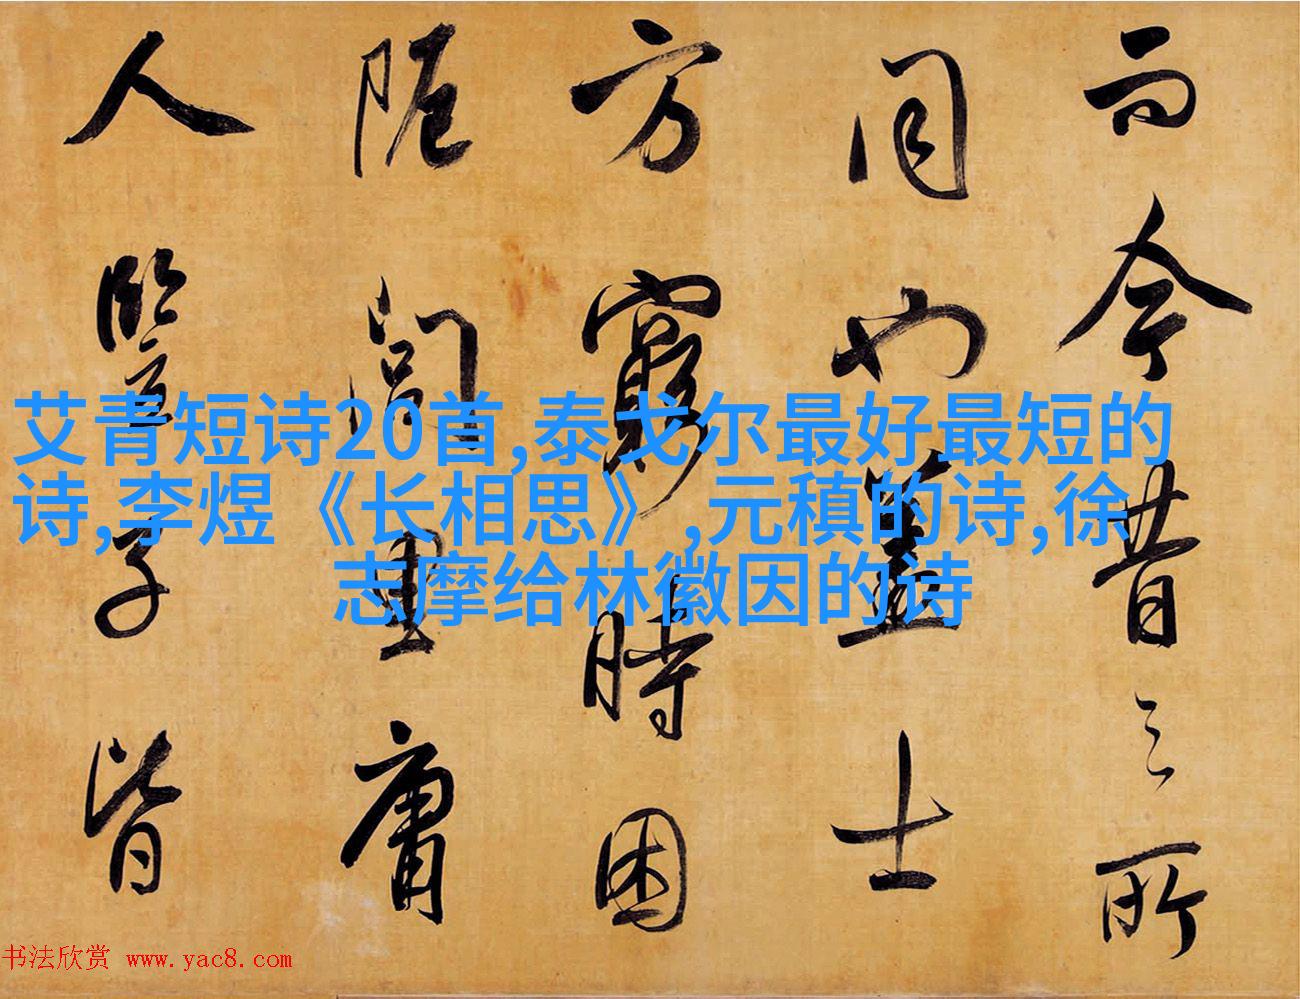 而今昔之所
同也蓋士
方窮時困
阨閭里庸
人豎子皆
艾青短诗20首,泰戈尔最好最短的
诗,李煜《长相思》,元稹的诗,徐
志摩给林徽因的诗
书法欣赏 www.yac8.com